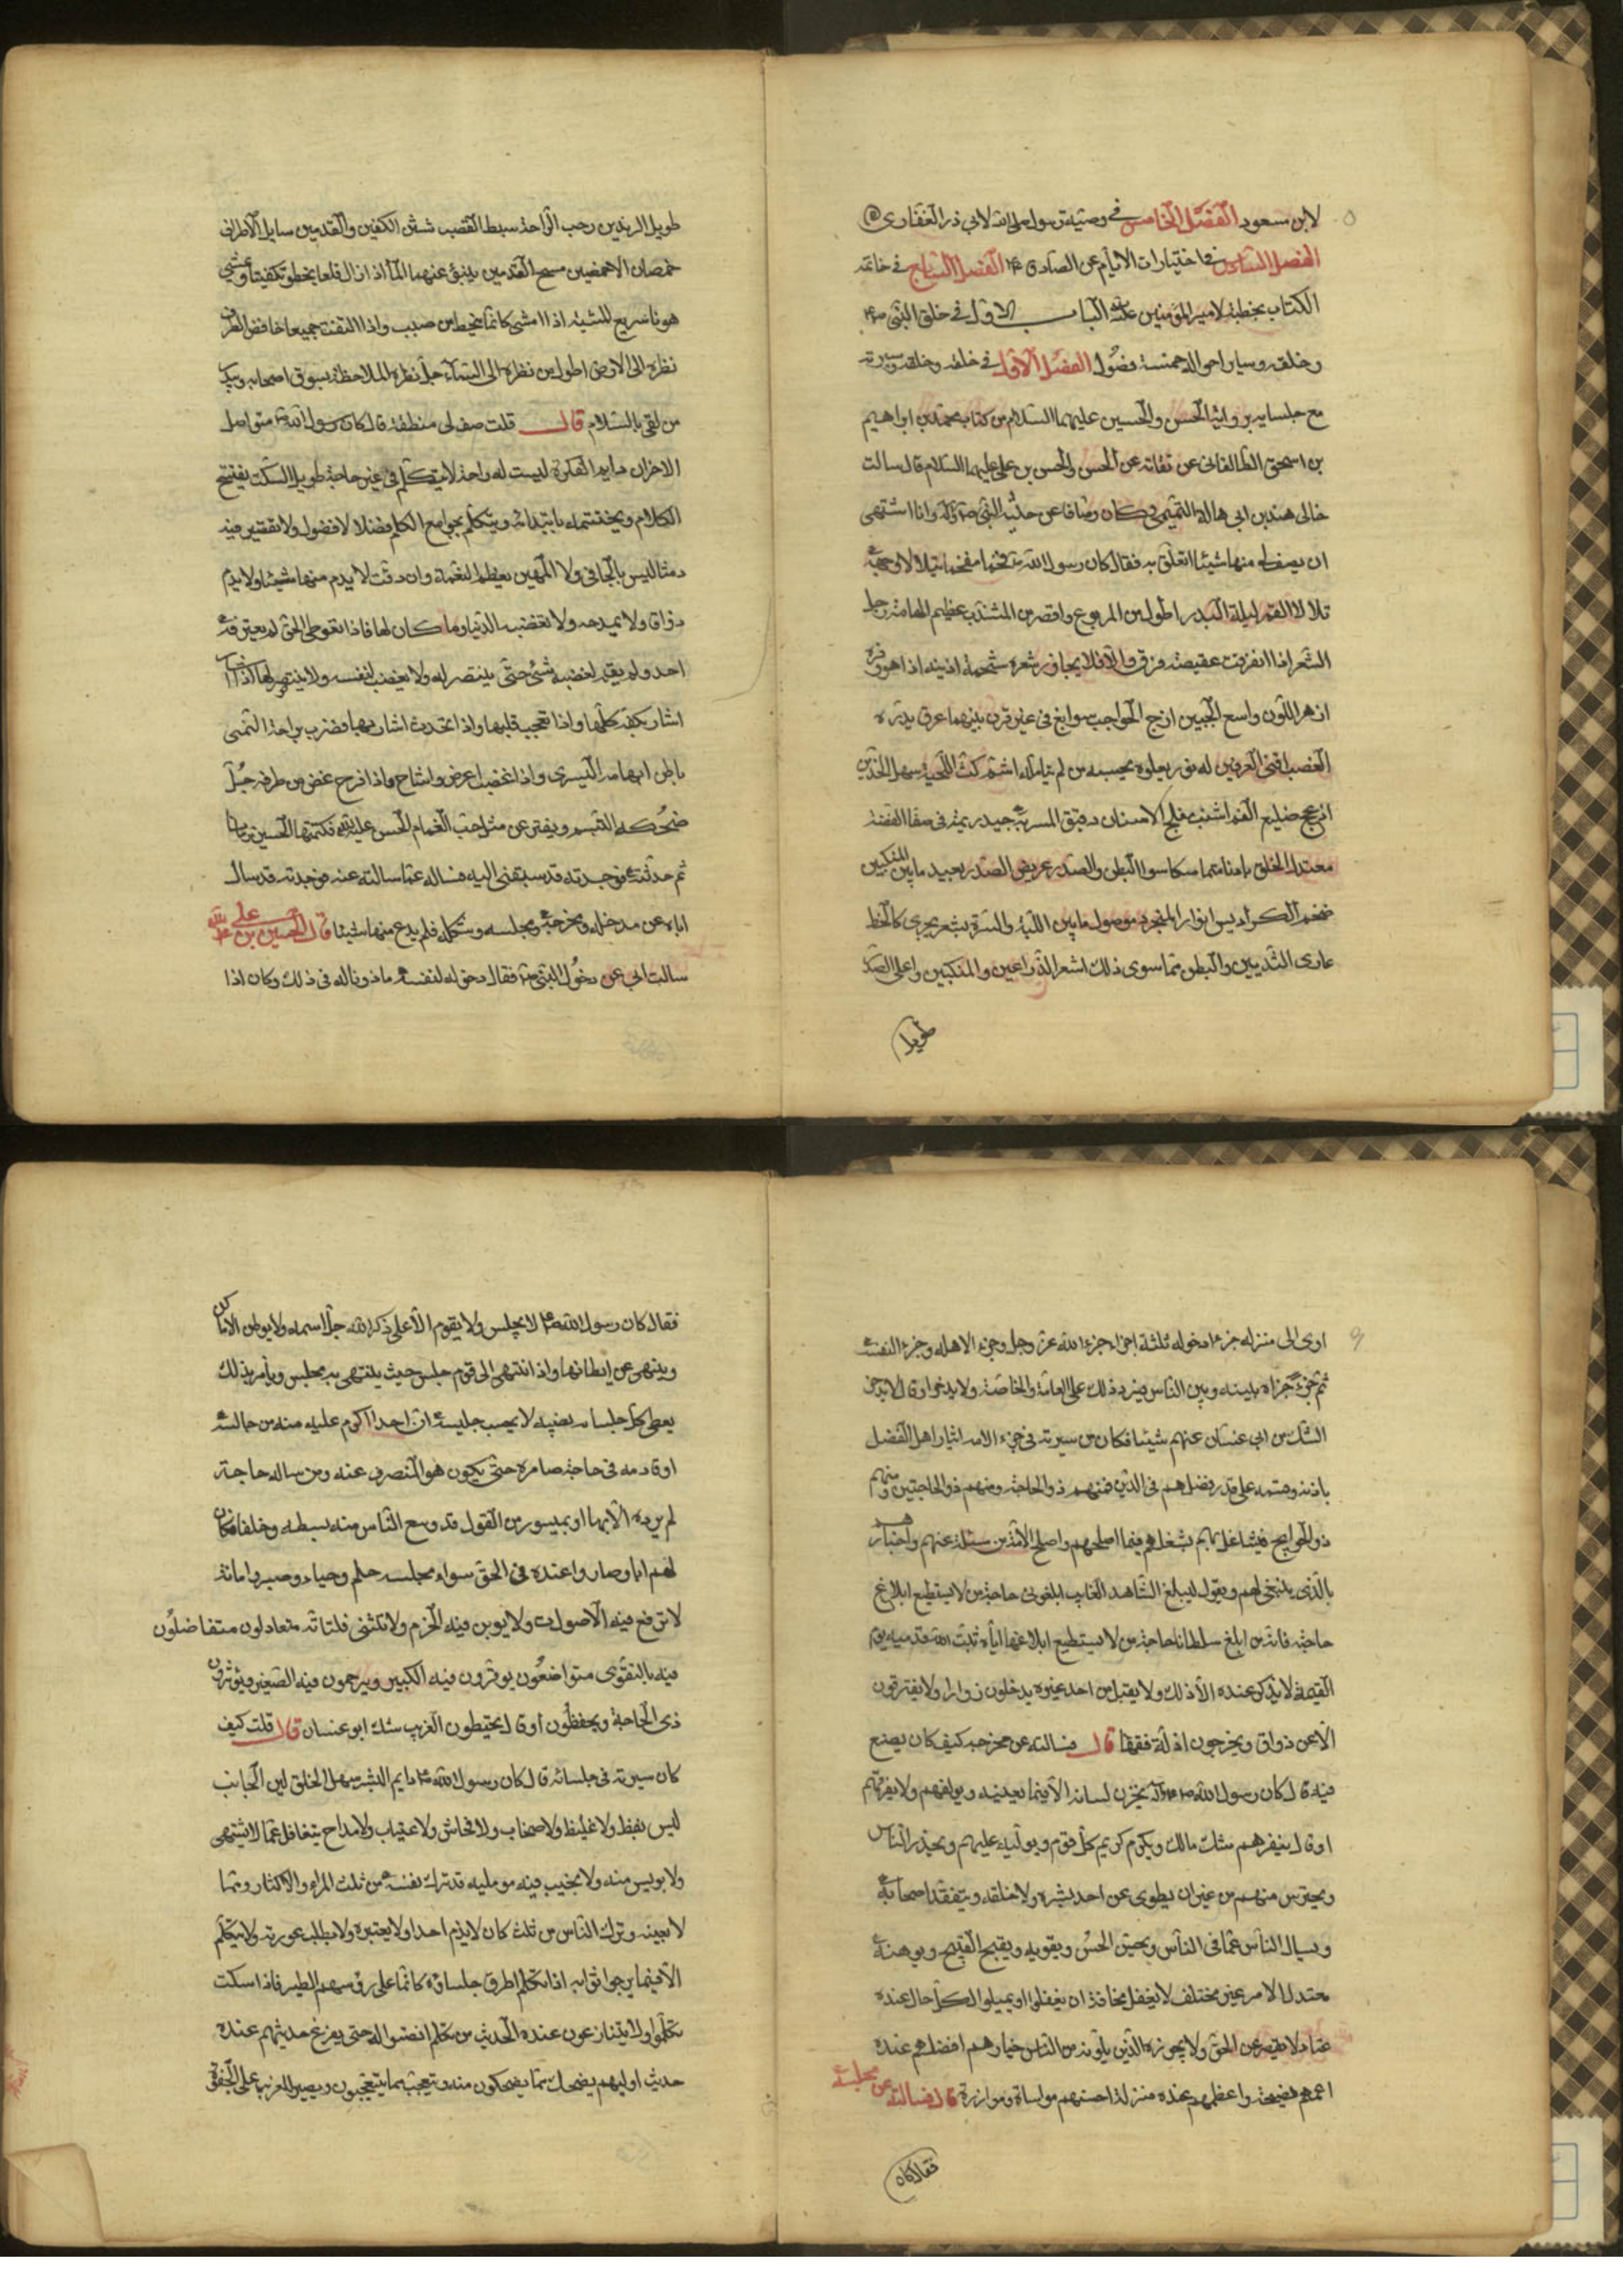 لابن مسعود الفصل الخامس في وصية رسول الله لابي ذر الغفاري
الفصل السادس في اختيارات الايام عن الصادق ع الفصل السابع في خاتمة
الكتاب بخطبة لامير المؤمنين عليه الباب الاول في خلق النبي ص
وخلقه وساير احواله خمسة فصول الفصل الاول في خلقه وخلقه وسيرته
مع جلسايه برواية الحسن والحسين عليهما السلام من كتاب محمد بن ابراهيم
بن اسحق الطالقاني عن ثقاته عن الحسن والحسن بن علي عليهما السلام قال سالت
خالي هند بن ابي هالة التميمي وكان وصافا عن حلية النبي ص وآله وانا اشتهى
ان يصف لي منها شيئا اتعلق به فقال كان رسول الله ص فخما مفخما يتلالا وجهه
تلالا القمر ليلة البدر اطول من المربوع واقصر من المشذب عظيم الهامة رجل
الشعر اذا انفرقت عقيصته فرق والا فلا يجاوز شعره شحمة اذنيه اذا هو وفره
ازهر اللون واسع الجبين ازج الحواجب سوابغ في غير قرن بينهما عرق يدره
الغضب اقنى العرنين له نور يعلوه يحسبه من لم يتامله اشم كث اللحية سهل الخدين
ضليع الفم اشنب مفلج الاسنان دقيق المسربة جيد دمية في صفا الفضة
معتدل الخلق بادنا متماسكا سوا البطن والصدر عريض الصدر بعيد ما بين المنكبين
ضخم الكراديس انوار المتجرد موصول ما بين اللبة والسرة بشعر يجري كالخط
عاري الثديين والبطن مما سوى ذلك اشعر الذراعين والمنكبين واعلى الصدر
طويل
طويل الزندين رحب الراحة سبط القصب شثن الكفين والقدمين سايل الاطراف
خمصان الاخمصين مسيح القدمين ينبؤ عنهما المأ اذا زال قلعا يخطو تكفيئا ويمشي
هونا سريع المشية اذا مشى كانما ينحط من صبب واذا التفت جميعا خافض الطرف
نظره الى الارض اطول من نظره الى السماء جل نظره الملاحظة يسوق اصحابه ويبدر
من لقي بالسلام قال قلت صف لي منطقه قال كان رسول الله ص متواصل
الاحزان دايم الفكرة ليست له راحة لا يتكلم في غير حاجة طويل السكت يفتتح
الكلام ويختتمه بابتدائه ويتكلم بجوامع الكلم فضلا لا فضول ولا تقصير فيه
دمثا ليس بالجافي ولا المهين يعظم النعمة وان دقت لا يذم منها شيئا ولا يذم
ذواق ولا يمدحه ولا تغضبه الدنيا وما كان لها فاذا تعوطي الحق لم يعرفه
احد ولم يقم لغضبه شيء حتى ينتصر له ولا يغضب لنفسه ولا ينتصر لها اذا
اشار بكفه كلها واذا تعجب قلبها واذا تحدث اشار بها فضرب براحته اليمنى
باطن ابهامه اليسرى واذا غضب اعرض واشاح واذا فرح غض من طرفه جل
ضحكه التبسم ويفتر عن مثل حب الغمام الحسن عليه فكتمتها الحسين زمانا
ثم حدثته فوجدته قد سبقني اليه فساله عما سالته عنه فوجدته قد سال
اباه عن مدخله ومخرجه ومجلسه وشكله فلم يدع منها شيئا قال الحسين بن علي
سالت ابي عن دخول النبي ص فقال دخوله لنفسه ماذونا له في ذلك وكان اذا
اوى الى منزله جزء دخوله ثلثة اجزاء جزء الله عز وجل وجزء لاهله وجزء لنفسه
ثم جزء جزاه بينه وبين الناس فيرد ذلك على العامة والخاصة ولا يدخر او قال لا يدخر
الشك من ابي غسان عنهم شيئا فكان من سيرته في جزء الامة ايثار اهل الفضل
باذنه وقسمه على قدر فضلهم في الدين فمنهم ذو الحاجة ومنهم ذو الحاجتين ومنهم
ذو الحوايج فيتشاغل بهم يشغلهم فيما اصلحهم واصلح الامة من مسئلة عنهم واخبارهم
بالذي ينبغي لهم ويقول ليبلغ الشاهد الغايب ابلغوني حاجة من لا يستطيع ابلاغ
حاجته فانه من ابلغ سلطانا حاجة من لا يستطيع ابلاغها اياه ثبت الله قدميه يوم
القيمة لا يذكر عنده الا ذلك ولا يقبل من احد غيره يدخلون زوارا ولا يفترقون
الا عن ذواق ويخرجون اذلة فقها قال فسالته عن مخرجه كيف كان يصنع
فيه قال كان رسول الله ص وآله يخزن لسانه الا فيما يعنيه ويولفهم ولا يفرقهم
او قال ينفرهم شك مالك ويكرم كريم كل قوم ويوليه عليهم ويحذر الناس
ويحترس منهم من غير ان يطوي عن احد بشره ولا خلقه ويتفقد اصحابه
ويسال الناس عما في الناس ويحسن الحسن ويقويه ويقبح القبيح ويوهنه
معتدل الامر غير مختلف لا يغفل مخافة ان يغفلوا او يميلوا لكل حال عنده
عتاد لا يقصر عن الحق ولا يجوزه الذين يلونه من الناس خيارهم افضلهم عنده
اعمهم نصيحة واعظمهم عنده منزلة احسنهم مواساة وموازرة قال فسالته عن مجلسه
فقال كان
فقال كان رسول الله ص لا يجلس ولا يقوم الا على ذكر الله جل اسمه ولا يوطن الاماكن
وينهى عن ايطانها واذا انتهى الى قوم جلس حيث ينتهى به مجلس ويأمر بذلك
يعطي كل جلسائه نصيبه لا يحسب جليسه ان احدا اكرم عليه منه من جالسه
او قادمه في حاجة صابره حتى يكون هو المنصرف عنه ومن ساله حاجة
لم يرده الا بها او بميسور من القول قد وسع الناس منه بسطه وخلقه فكان
لهم ابا وصاروا عنده في الحق سواء مجلسه حلم وحياء وصبر وامانة
لا ترفع فيه الاصوات ولا يوبن فيه الحرم ولا تنثى فلتاته متعادلون متفاضلون
فيه بالتقوى متواضعون يوقرون فيه الكبير ويرحمون فيه الصغير ويوثرون
ذي الحاجة ويحفظون او قال يحيطون الغريب شك ابو غسان قال قلت كيف
كان سيرته في جلسائه قال كان رسول الله ص دايم البشر سهل الخلق لين الجانب
ليس بفظ ولا غليظ ولا صخاب ولا فحاش ولا عياب ولا مداح يتغافل عما لا يشتهى
ولا يويس منه ولا يخيب فيه مومليه قد ترك نفسه من ثلث المراء والاكثار ومما
لا يعينه وترك الناس من ثلث كان لا يذم احدا ولا يعيره ولا يطلب عورته ولا يتكلم
الا فيما يرجو ثوابه اذا تكلم اطرق جلساؤه كانما على رؤسهم الطير فاذا سكت
تكلموا ولا يتنازعون عنده الحديث من تكلم انصتوا له حتى يفرغ حديثهم عنده
حديث اوليهم يضحك مما يضحكون منه ويتعجب مما يتعجبون ويصبر للغريب على الجفوة